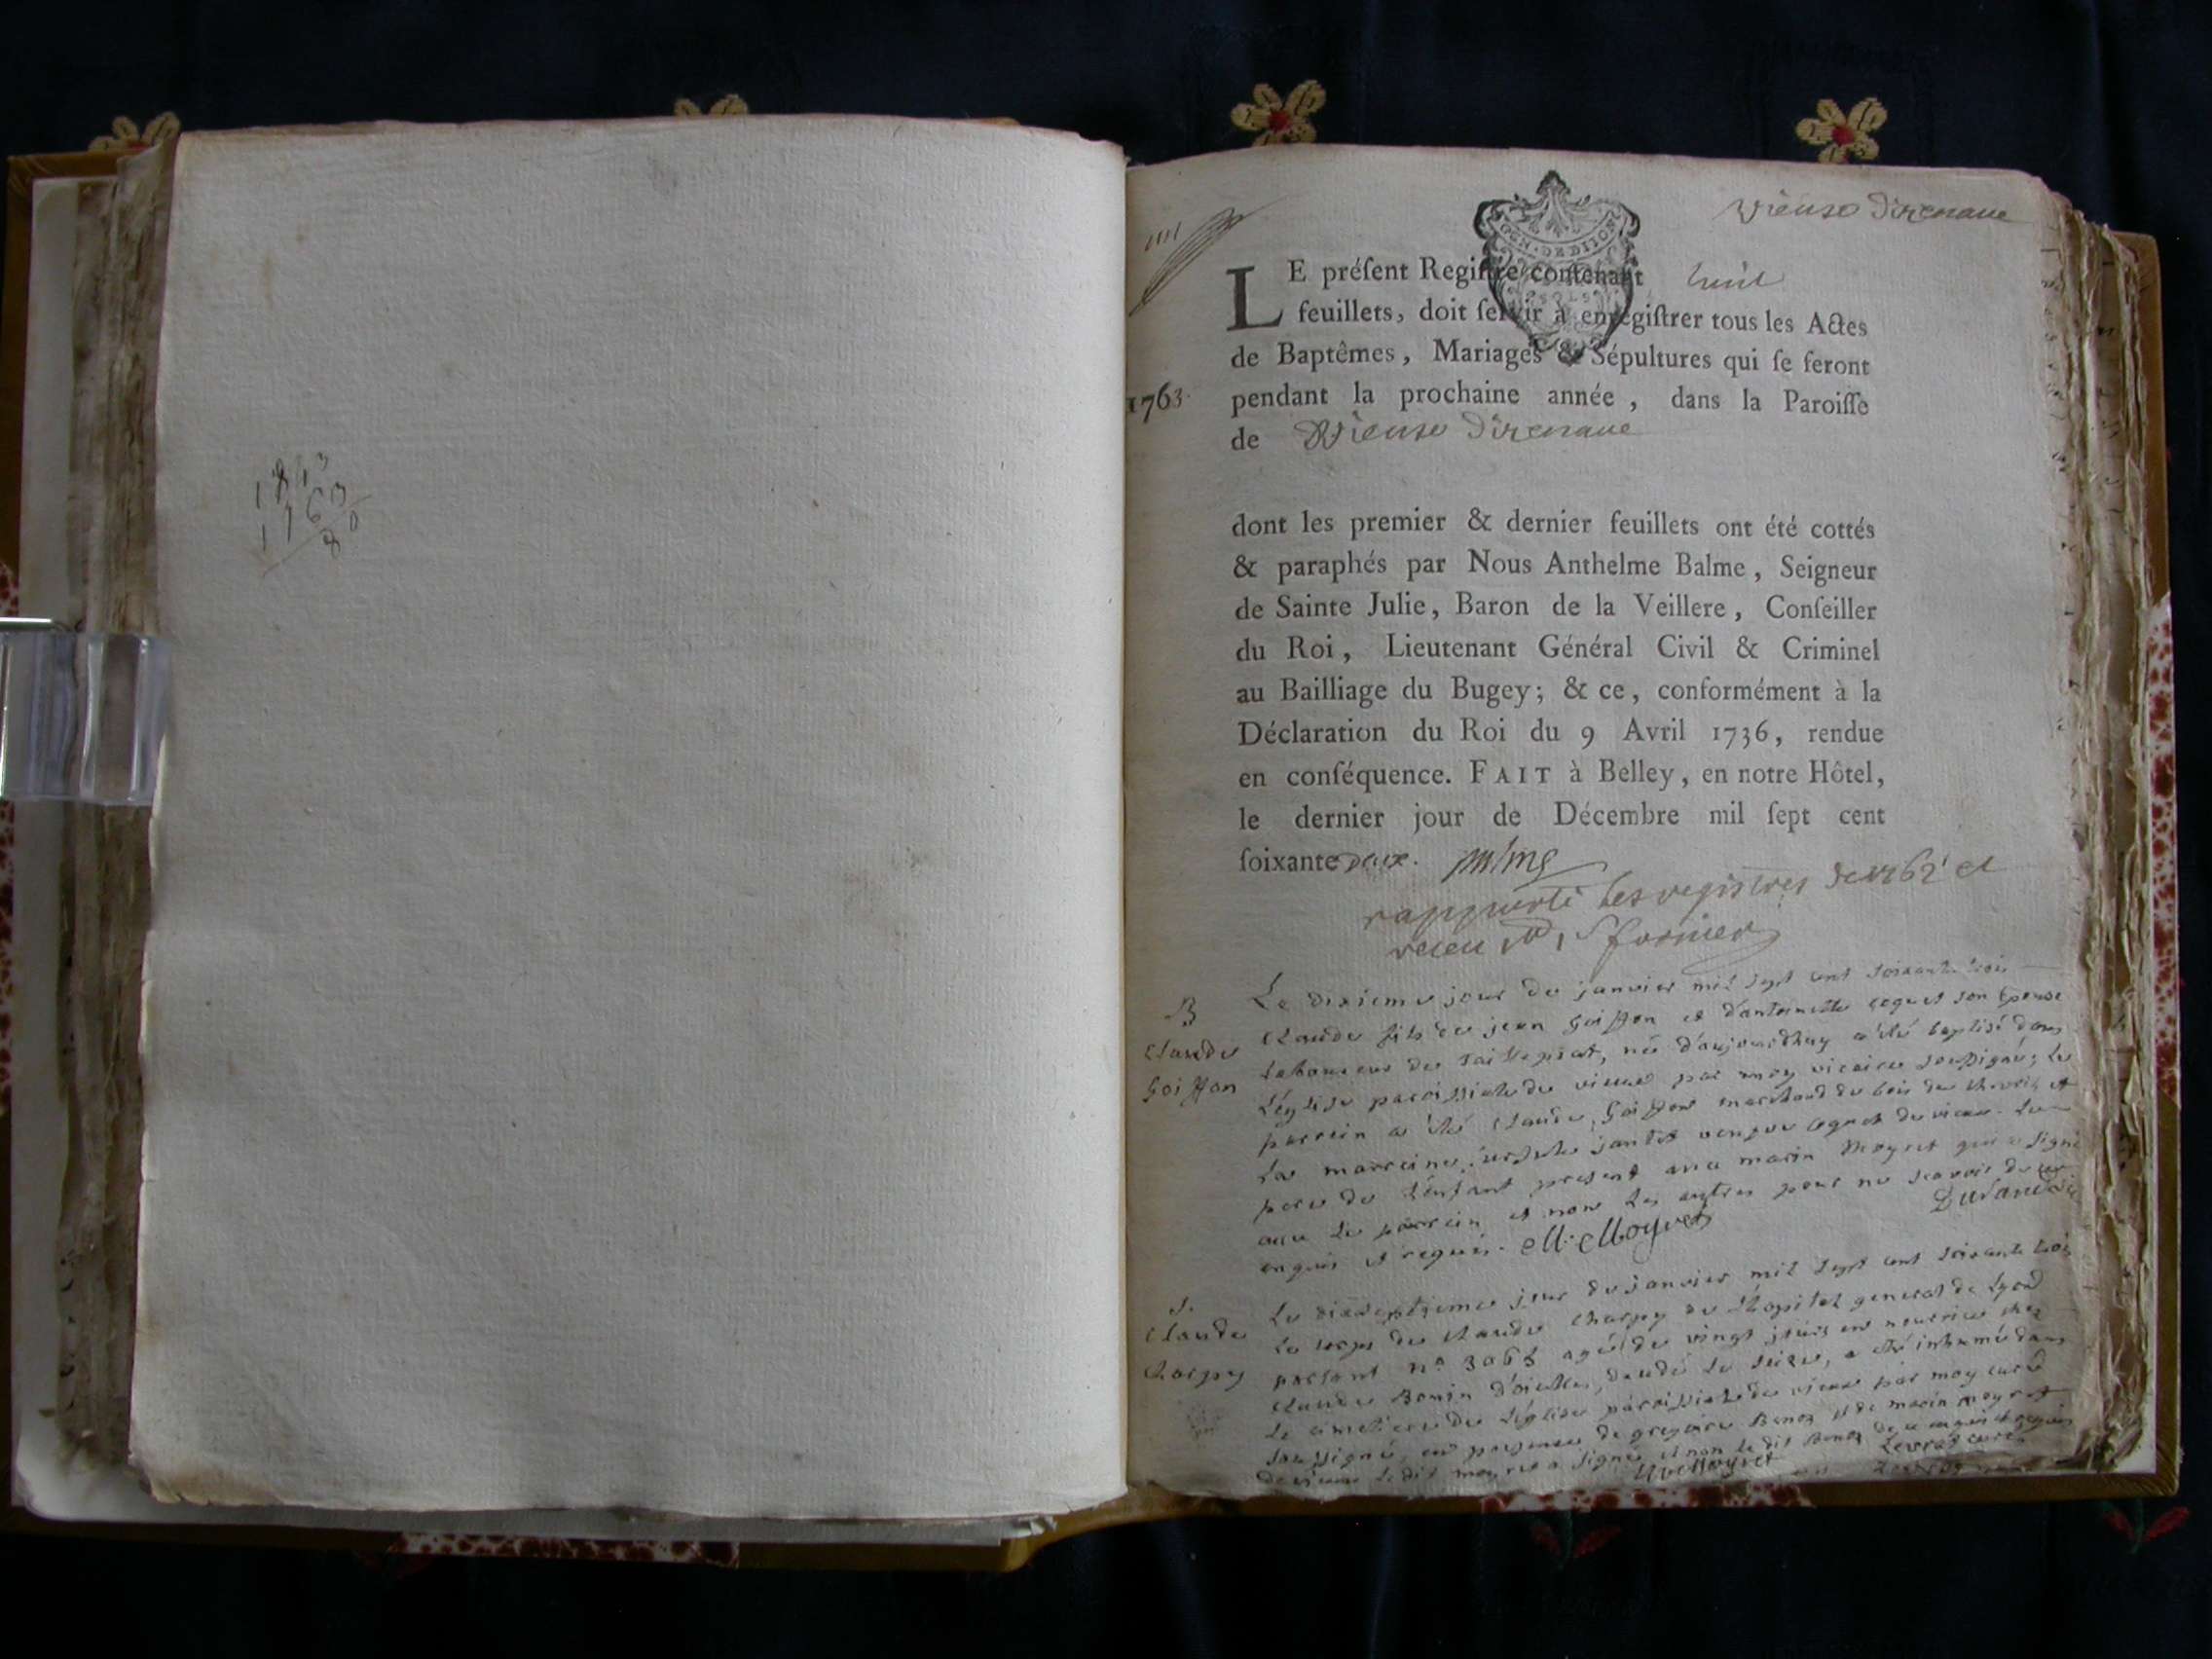 1843
1763
80
Vieuse direnaue
GEN. DE DIJON
LE préſent Regiſtre contenant huit
feuillets, doit ſervir à enregiſtrer tous les Actes
de Baptêmes, Mariages & Sépultures qui ſe feront
1763.
pendant la prochaine année, dans la Paroiſſe
de Vieuse direnaue
dont les premier & dernier feuillets ont été cottés
& paraphés par Nous Anthelme Balme, Seigneur
de Sainte Julie, Baron de la Veillere, Conſeiller
du Roi, Lieutenant Général Civil & Criminel
au Bailliage du Bugey; & ce, conformément à la
Déclaration du Roi du 9 Avril 1736, rendue
en conſéquence. FAIT à Belley, en notre Hôtel,
le dernier jour de Décembre mil ſept cent
ſoixante deux.
rapporté les registres de 1762 et
receu
B
Claude
Goiffon
Le dixieme jour de janvier mil sept cent soixante trois
Claude fils de jean Goiffon et d'antoinette coquet son epouse
laboureur de né d'aujourdhuy a été baptisé dans
L'église paroissiale de vieux par moy vicaire soussigné; Le
parrein a été Claude Goiffon marchand de bois de et
La marreine ursule jantet coquet de vieux. Le
pere de L'enfant present avec marin Moyret qui a signé
avec Le parrein et non Les autres pour ne scavoir de ce
enquis et requis. M. Moyret
S.
Claude
Charpy
Le dixseptieme jour de janvier mil sept cent soixante trois
Le corps de Claude Charpy de L'hopital general de Lyon
portant n° agé de vingt jours en nourrice chez
Claude Bonin décédé Le seize, a été inhumé dans
Le cimetiere de L'église paroissiale de vieux par moy curé
soussigné, en presence de gregoire et de marin moyret
de vieux Le dit moyret a signé et non Le dit de ce enquis et requis
M Moyret Levrat curé